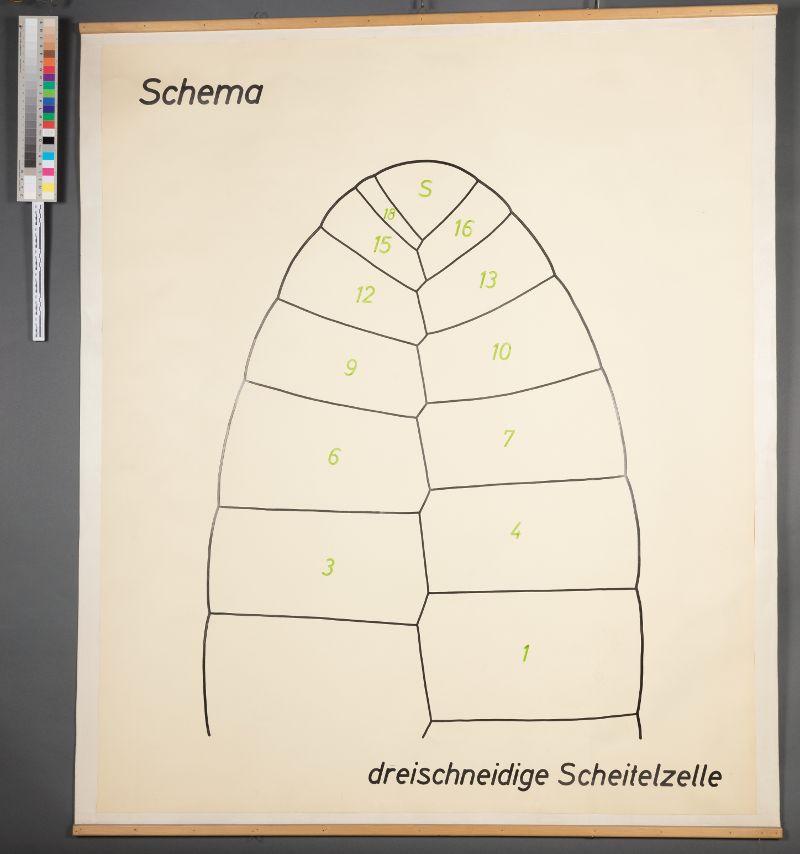 Schema
S
18
16
15
13
12
10
9
7
6
4
3
1
dreischneidige Scheitelzelle